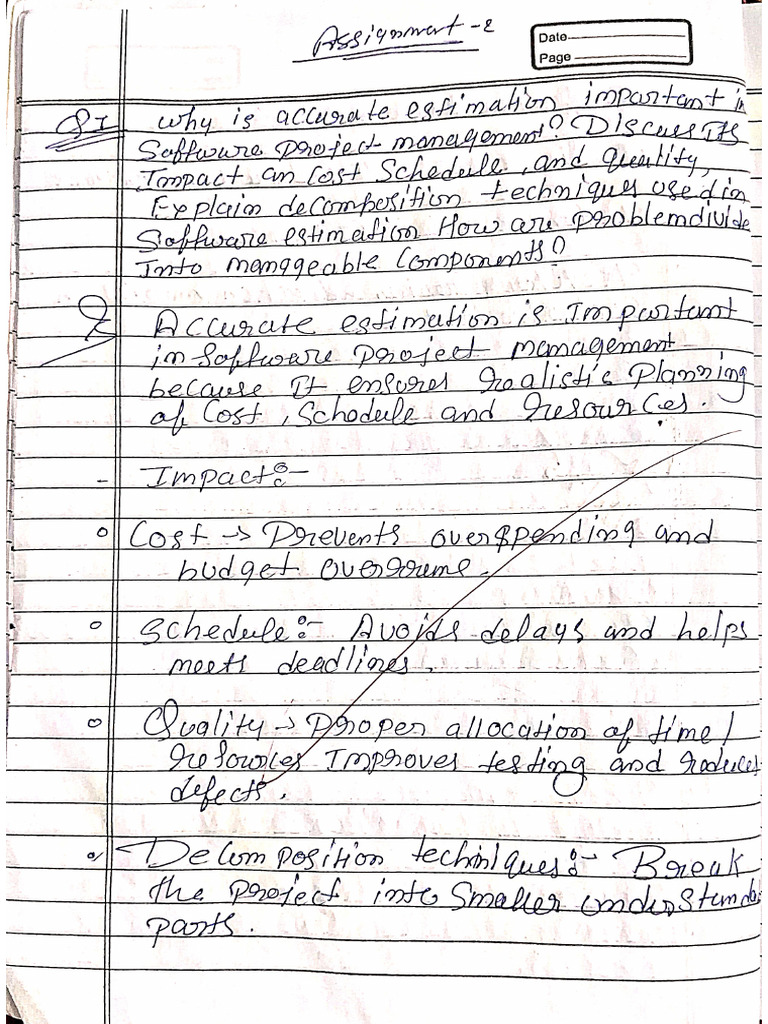 Assignment-2
Date
Page
Q1 why is accurate estimation important in
Software project management? Discuss Its
Impact on Cost Schedule, and quality,
Explain decomposition techniques used in
Software estimation How are problem divide
Into manageable Components?
Accurate estimation is Important
in Software project management
because It ensures realistic planning
of Cost, Schedule and resources.
- Impact:-
Cost → Prevents overspending and
budget overruns.
Schedule:- Avoids delays and helps
meets deadlines.
Quality → Proper allocation of time/
resources Improves testing and reduces
defects.
Decomposition techniques:- Break
the project into Smaller understandab
parts.